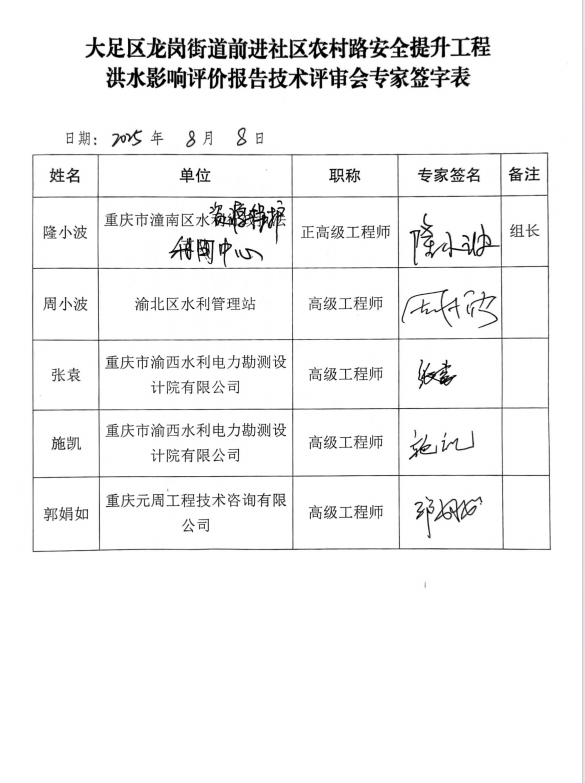 大足区龙岗街道前进社区农村路安全提升工程
洪水影响评价报告技术评审会专家签字表
日期: 2025 年 8 月 8 日
姓名 单位 职称 专家签名 备注
隆小波 重庆市潼南区水利 资源保护 正高级工程师 隆小波 组长
利用中心
周小波 渝北区水利管理站 高级工程师 周小波
张袁 重庆市渝西水利电力勘测设 高级工程师 张袁
计院有限公司
施凯 重庆市渝西水利电力勘测设 高级工程师 施凯
计院有限公司
郭娟如 重庆元周工程技术咨询有限 高级工程师 郭娟如
公司